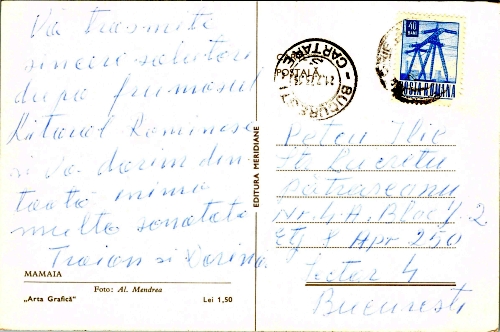 Va trasmite
sincere salutari
dupa frumosul
litoral Rominesc
si va dorim din
toata inima
multa sanatate
Traian si Dorina
MAMAIA
Foto: Al. Mendrea
„Arta Grafică"
Lei 1,50
EDITURA MERIDIANE
BUCUREȘTI
CARTARE
40
BANI
POSTA ROMANA
Petru Ilie
Str Lucretiu
Pătrășcanu
Nr 4 A. Bloc 2
Etj 8 Apr 250
Sector 4
Bucuresti